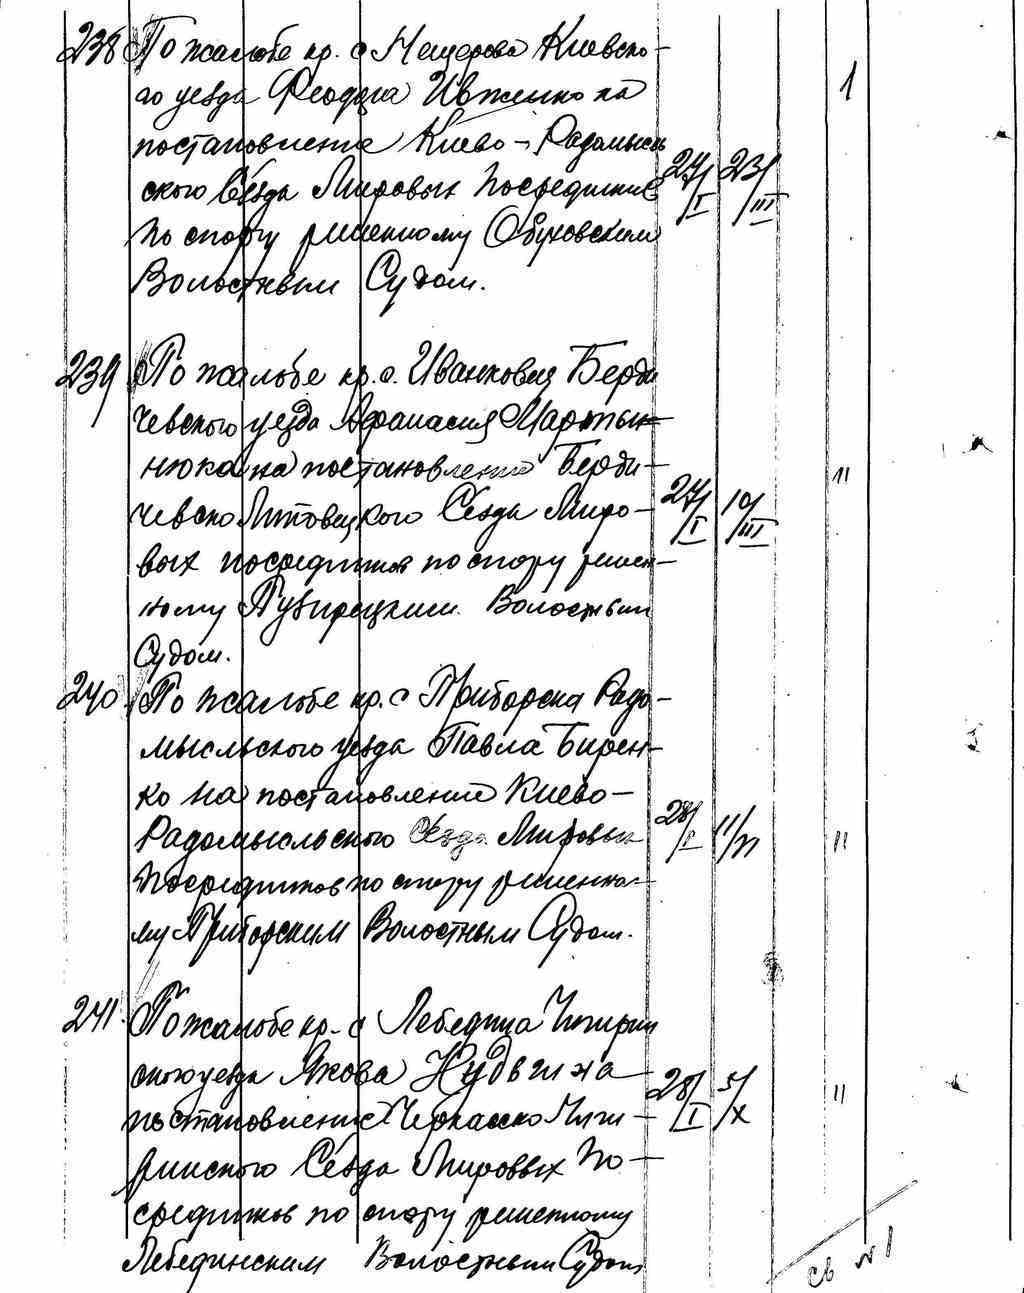 238 По жалобе кр. с Мещерова Киевско-
го уезда Феодра Ивженко на
1
постановление Киево-Радомысль
ского Сезда Мировых Посредников
27/I 23/III
по спору решенному Обуховским
Волостным Судом.
239 По жалобе кр. с. Иванковец Берди
чевского уезда Афанасия Марты-
нюка на постановление Берди-
"
чевско Липовецкого Сезда Миро-
27/I 10/III
вых посредников по спору решен-
ному Пузырецким Волостным
Судом.
240 По жалобе кр. с Приборска Радо-
мысльского уезда Павла Бирен-
ко на постановление Киево-
Радомысльского Сезда Мировых
28/I 11/
"
посредников по спору решенно-
му Приборским Волостным Судом.
241. По жалобе кр. с Лебедина Чигирин
ского уезда Якова Нудьги на
28/I 5/X
"
постановление Черкасско Чиги-
ринского Сезда Мировых По-
средников по спору решенному
Лебединским Волостным Судом
св № 1